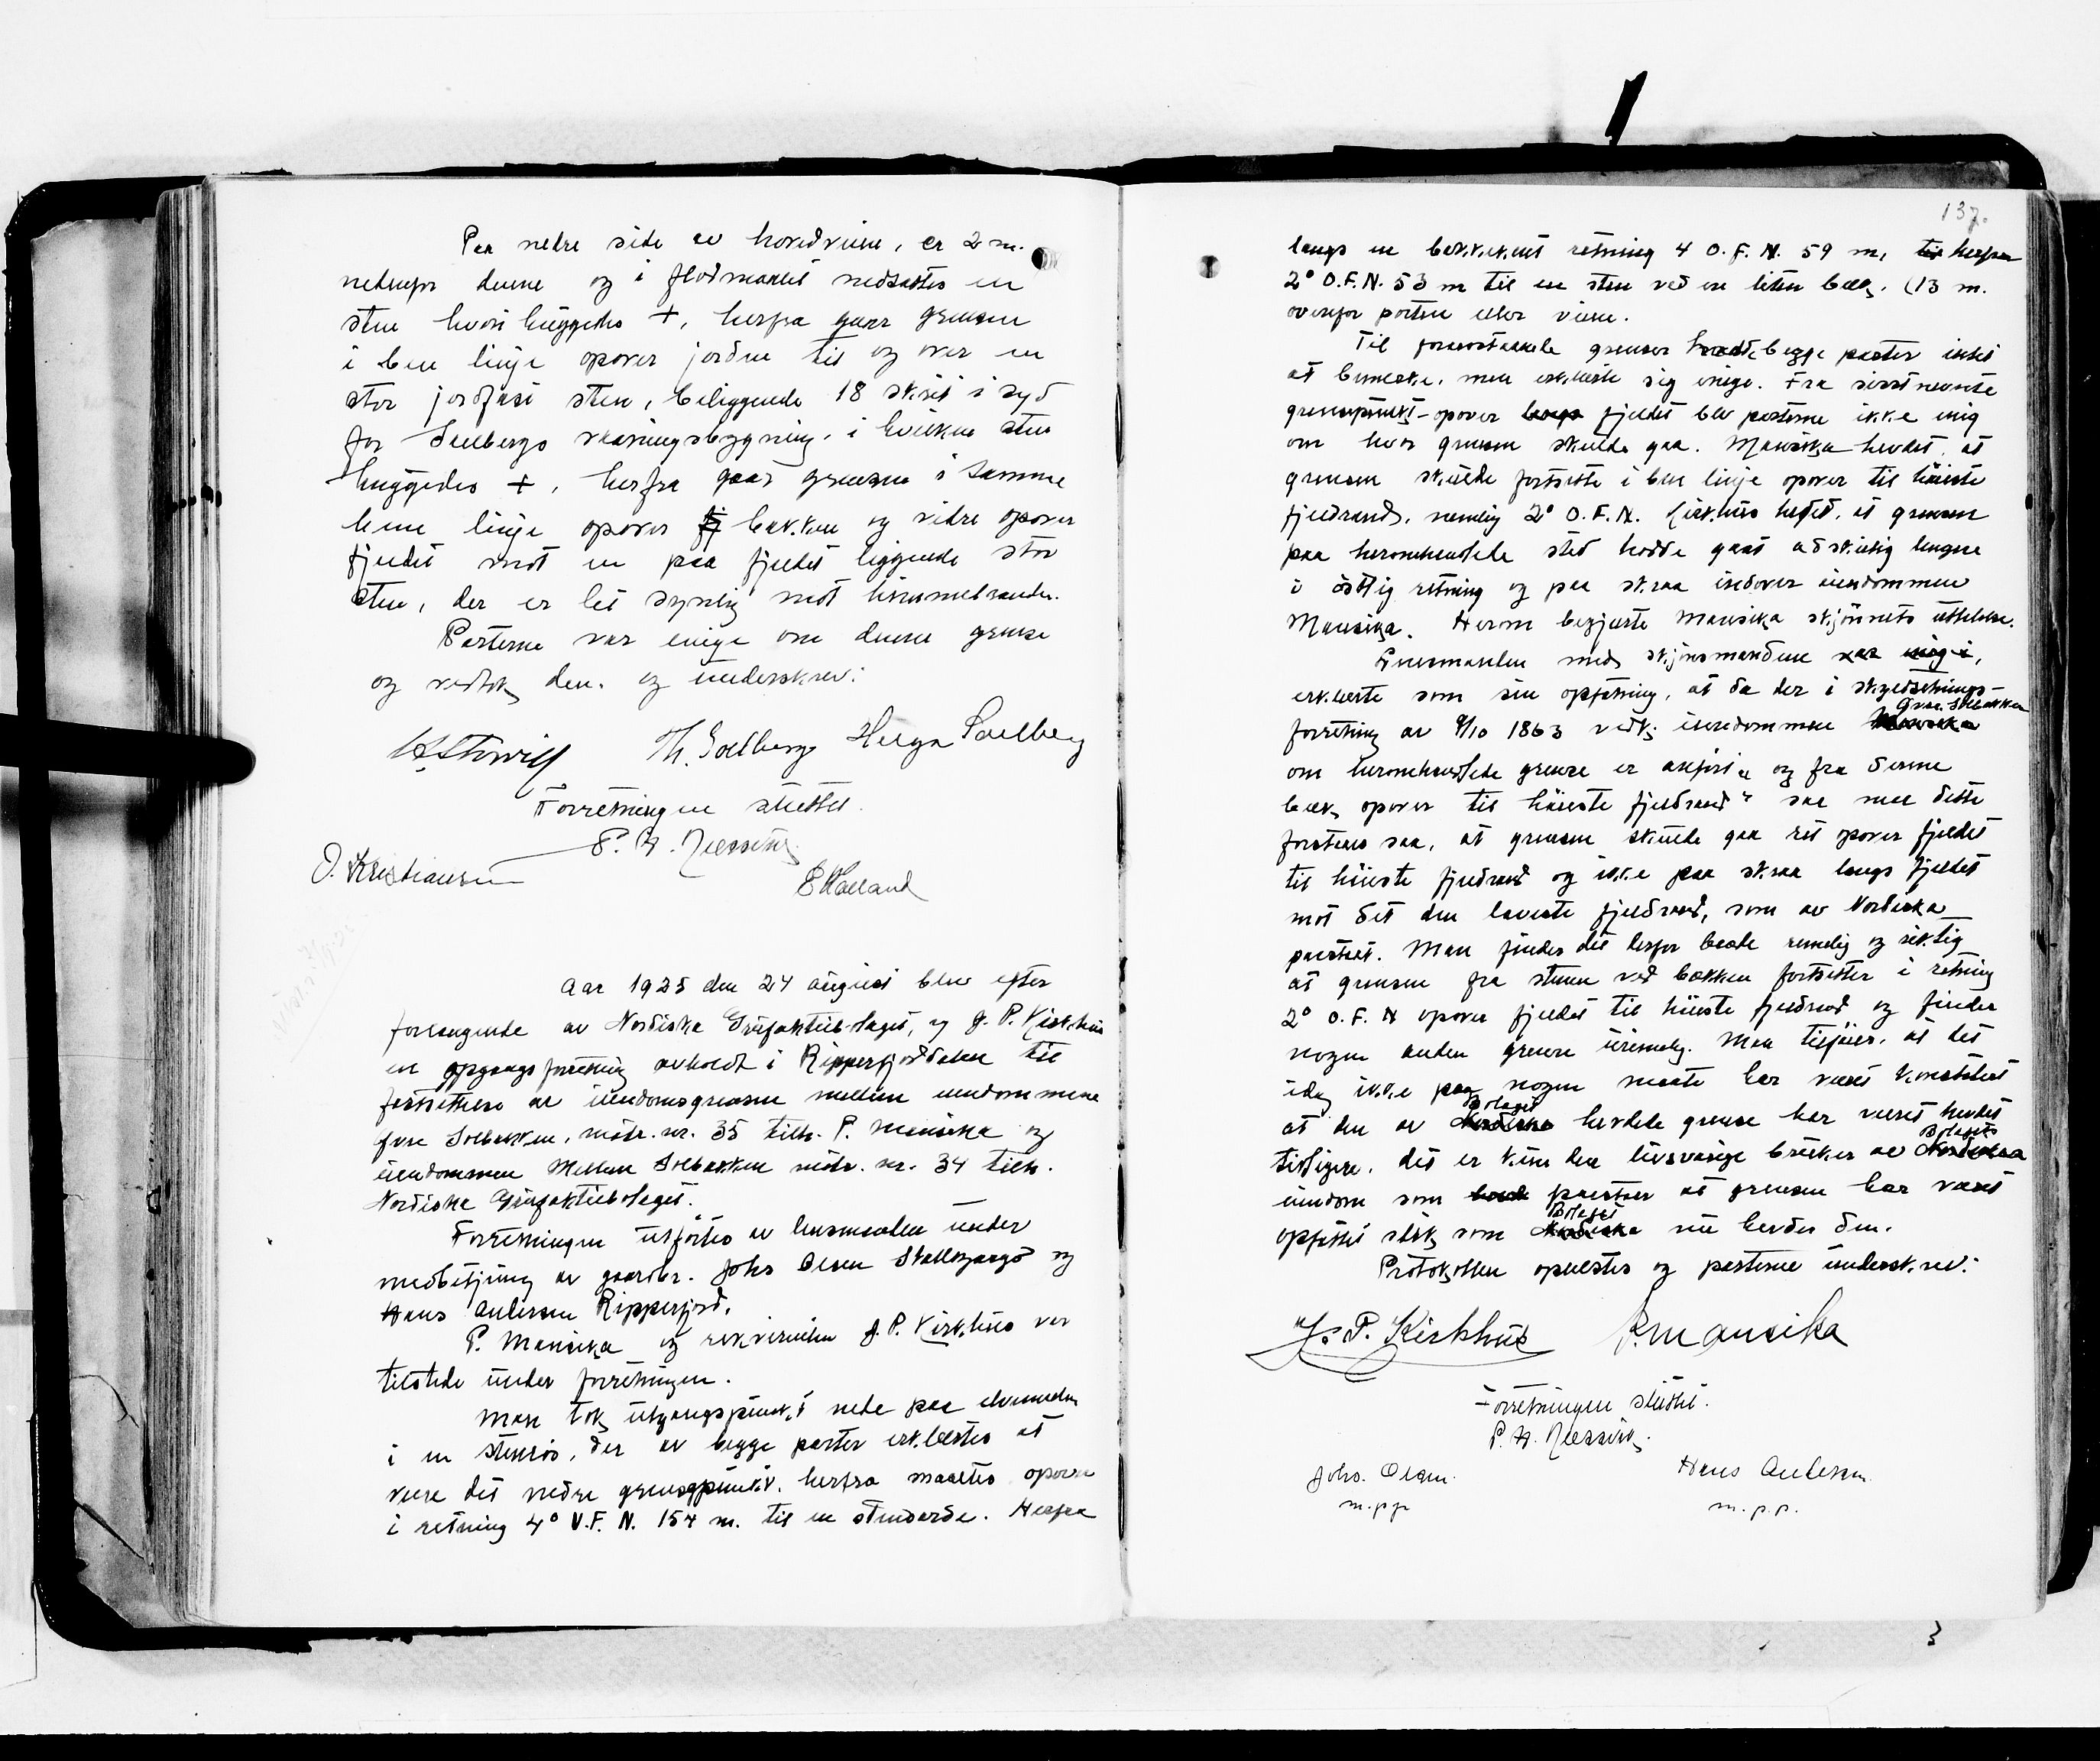 Paa nedre side av hovedveien, ca 2 m.
nedenfor denne og i flodmaalet nedsattes en
sten hvori huggedes +, herfra gaar grensen
i ben linje opover jordene til og over en
stor jordfast sten, beliggende 18 skrit i syd
for Soelbergs vaaningsbygning, i hvilken sten
huggedes +, herfra gaar grensen i samme
bene linje opover bakken og videre opover
fjeldet mot en paa fjeldet liggende stor
sten, der er let synlig mot himmelranden.
Parterne var enige om denne grense
og vedtok den. og underskrev:
Th. Soelberg Helga Soelberg
Forretningen sluttet.
O. Kristiansen
E Holland
Aar 1925 den 24 august blev efter
forlangende av Nordiske Grufaktiebolaget, ved J. P. Kirkhus
en opgangsforretning avholdt i Ripperfjorddalen til
fastsættelse av eiendomsgrensen mellem eiendommene
Øvre Solbakken, matr. nr. 35 tilh. P. Mansika og
eiendommen Mellem Solbakken matr. nr. 34 tilh.
Nordiske Grufaktiebolaget.
Forretningen utførtes av lensmanden under
medbetjening av gaardbr. Johs Olsen Skallogargo og
Hans Andersen Ripperfjord.
P. Mansika og rekvirenten J. P. Kirkhus var
tilstede under forretningen.
Man tok utgangspunkt nede paa elvemælen
i en stenrøs, der av begge parter erklærtes at
være det nedre grensepunkt. herfra maaltes opover
i retning 4° V.F.N. 154 m. til en stenvarde. Herfra
137.
langs en bækkekant retning 4 O.F.N. 59 m, til herfra
2° O.F.N. 53 m til en sten ved en liten bæk, (13 m.
ovenfor porten eller veien.
Til foranstaaende grenser hadde begge parter intet
at bemerke, men erklærte sig enige. Fra sidstnevnte
grensepunkt opover langs fjeldet blev parterne ikke enig
om hvor grensen skulde gaa. Mansika hevdet, at
grensen skulde fortsette i ben linje opover til høieste
fjeldrand, nemlig 2° O.F.N. Kirkhus hevdet, at grensen
paa heromhandlede sted hadde gaat adskillig lengere
i østlig retning og paa skraa indover eiendommen
Mansika. Herom begjærte Mansika skjønnets uttalelse.
Lensmanden med skjønsmændene var enig i,
erklærte som sin opfatning, at da der i skyldsetnings-
forretning av 9/10 1863 vedk. eiendommen Mansika Øvre Solbakken
om heromhandlede grense er anført „ og fra denne
bæk opover til høieste fjeldrand“ saa maa dette
forstaaes saa, at grensen skulde gaa ret opover fjeldet
til høieste fjeldrand og ikke paa skraa langs fjeldet
mot det den laveste fjeldrand, som av Nordiska
paastaat. Man finder det derfor baade rimelig og riktig
at grensen fra stenen ved bækken fortsetter i retning
2° O.F.N opover fjeldet til høieste fjeldrand og finder
nogen anden grense urimelig. Man tilføier, at det
idag ikke paa nogen maate har været konstatert
at den av Nordiska Bolaget hevdede grense har været hevdet
tidligere. det er kun den livsvarige bruker av Nordiska Bolagets
eiendom som paastaar at grensen har været
opfattet slik som Nordiska Bolaget nu hevder den.
Protokollen oplæstes og parterne underskrev:
J. P. Kirkhus P. Mansika
Forretningen sluttet.
Johs. Olsen Hans Andersen
m.p.p. m.p.p.